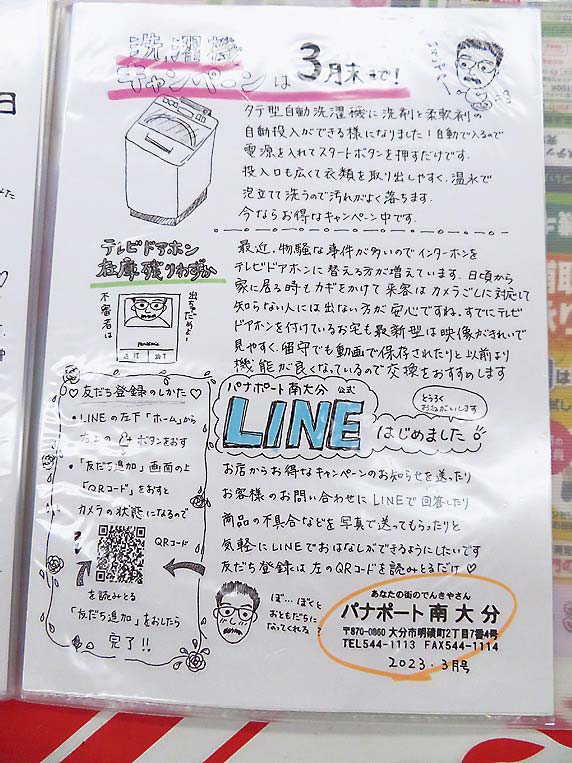 洗濯機
キャンペーンは3月末まで!
タテ型自動洗濯機に洗剤と柔軟剤の
自動投入ができる様になりました!自動で入るので
電源を入れてスタートボタンを押すだけです.
投入口も広くて衣類を取り出しやすく.温水で
泡立てて洗うので汚れがよく落ちます.
今ならお得なキャンペーン中です.
テレビドアホン
在庫残りわずか
不審者は
出ちゃだめよ!
最近.物騒な事件が多いのでインターホンを
テレビドアホンに替える方が増えています.日頃から
家に居る時もカギをかけて来客はカメラごしに対応して
知らない人には出ない方が安心ですね.すでにテレビ
ドアホンを付けているお宅も最新型は映像がきれいで
見やすく.留守でも動画で保存されたりと以前より
機能が良くなっているので交換をおすすめします
♡友だち登録のしかた♡
・LINEの左下「ホーム」から
右上の ボタンをおす
・「友だち追加」画面の上
「QRコード」をおすと
カメラの状態になるので
QRコード
を読みとる
「友だち追加」をおしたら
完了!!
パナポート南大分 公式
LINE
はじめました
とうろく
おねがいします
お店からお得なキャンペーンのお知らせを送ったり
お客様のお問い合わせにLINEで回答したり
商品の不具合などを写真で送ってもらったりと
気軽にLINEでおはなしができるようにしたいです
友だち登録は左のQRコードを読みとるだけ♡
ぼ…ぼくと
おともだちに
なってくれる?
あなたの街のでんきやさん
パナポート南大分
〒870-0860 大分市明磧町2丁目7番4号
TEL544-1113 FAX544-1114
2023.3月号